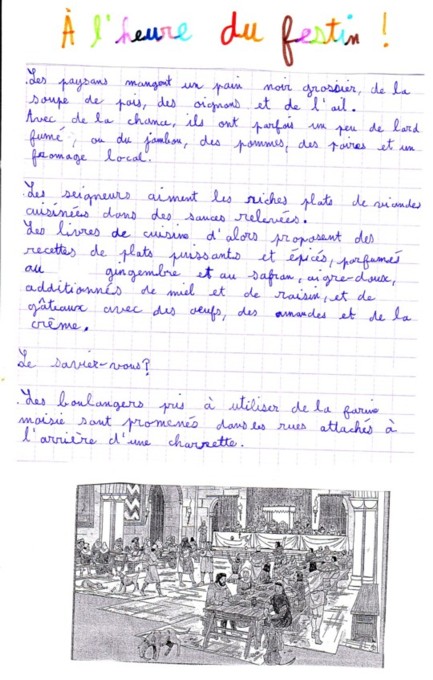 À l'heure du festin !
Les paysans mangent un pain noir grossier, de la
soupe de pois, des oignons et de l'ail.
Avec de la chance, ils ont parfois un peu de lard
fumé, ou du jambon, des pommes, des poires et un
fromage local.
Les seigneurs aiment les riches plats de viandes
cuisinées dans des sauces relevées.
Les livres de cuisine d'alors proposent des
recettes de plats puissants et épicés, parfumés
au gingembre et au safran, aigre-doux,
additionnés de miel et de raisin, et de
gâteaux avec des oeufs, des amandes et de la
crème.
Le saviez-vous?
Les boulangers pris à utiliser de la farine
moisie sont promenés dans les rues attachés à
l'arrière d'une charrette.